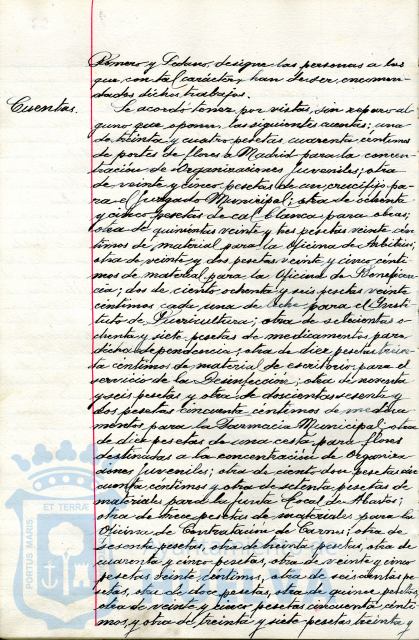 Romero y Pedro, designe las personas a los
que, con tal carácter, han de ser encomen
dados dichos trabajos.
Cuentas.
Se acordó tener por vistas, sin reparo al
guno que oponer, las siguientes cuentas: una
de treinta y cuatro pesetas cuarenta céntimos
de portes de flores a Madrid para la concen
tración de Organizaciones Juveniles; otra
de veinte y cinco pesetas de un crucifijo pa
ra el Juzgado Municipal; otra de ochenta
y cinco pesetas de cal blanca para obras;
otra de quinientas veinte y tres pesetas veinte cén
timos de material para la Oficina de Arbitrios;
otra de veinte y dos pesetas veinte y cinco cénti
mos de material para la Oficina de Beneficen
cia; dos de ciento ochenta y seis pesetas veinte
céntimos cada una de leche para el Insti
tuto de Puericultura; otra de setecientas o
chenta y siete pesetas de medicamentos para
dicha dependencia; otra de diez pesetas trein
ta céntimos de material de escritorio para el
servicio de la Desinfección; otra de noventa
y seis pesetas y otra de doscientas sesenta y
dos pesetas cincuenta céntimos de medica
mentos para la Farmacia Municipal; otra
de diez pesetas de una cesta para flores
destinadas a la concentración de Organiza
ciones Juveniles; otra de ciento dos pesetas cin
cuenta céntimos y otra de setenta pesetas de
materiales para la Junta Local de Abastos;
otra de trece pesetas de materiales para la
Oficina de Contratación de Carnes; otra de
sesenta pesetas, otra de treinta pesetas, otra de
cuarenta y cinco pesetas, otra de veinte y cinco
pesetas veinte céntimos, otra de seiscientas pe
setas, otra de doce pesetas, otra de quince pesetas,
otra de veinte y cinco pesetas cincuenta cénti
mos, y otra de treinta y siete pesetas treinta
PORTUS MARIS ET TERRÆ